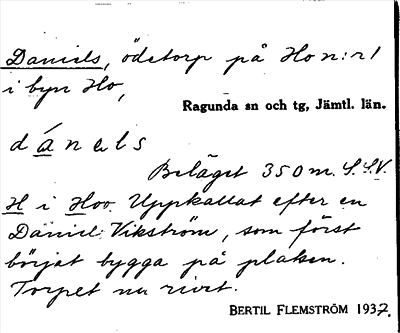 Daniels, ödetorp på Ho n:r 1
i byn Ho,
Ragunda sn och tg, Jämtl. län.
dánəls
Beläget 350 m. S.S.V.
H i Hoo. Uppkallat efter en
Daniel Vikström, som först
börjat bygga på platsen.
Torpet nu rivet.
BERTIL FLEMSTRÖM 1937.